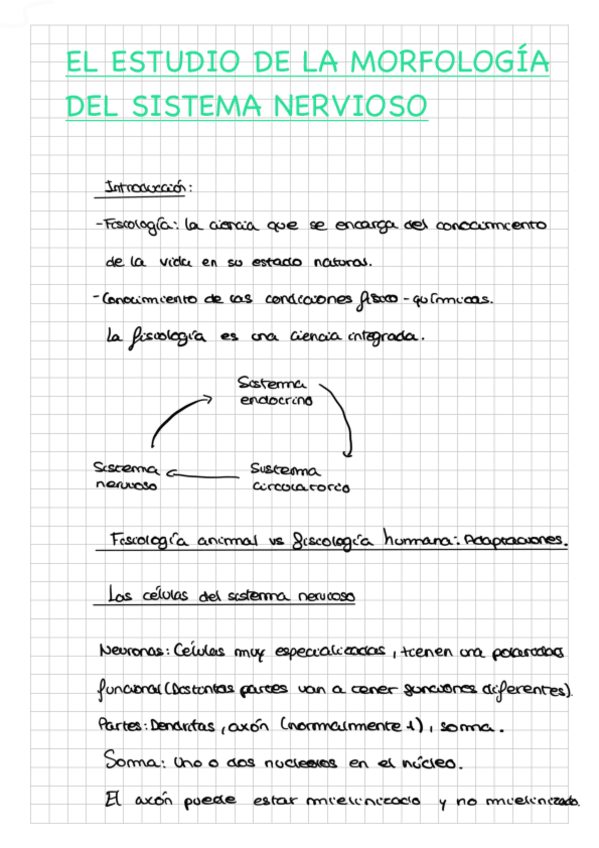 EL ESTUDIO DE LA MORFOLOGÍA
DEL SISTEMA NERVIOSO
Introducción:
-Fisiología: la ciencia que se encarga del conocimiento
de la vida en su estado natural.
-Conocimiento de las condiciones físico-químicas.
La fisiología es una ciencia integrada.
Sistema
endocrino
Sistema
nervioso
Sistema
circulatorio
Fisiología animal vs fisiología humana: Adaptaciones.
Las células del sistema nervioso
Neuronas: Células muy especializadas, tienen una polaridad
funcional (Distintas partes van a tener funciones diferentes).
Partes: Dendritas, axón (normalmente 1), soma.
Soma: Uno o dos nucleolos en el núcleo.
El axón puede estar mielinizado y no mielinizado.